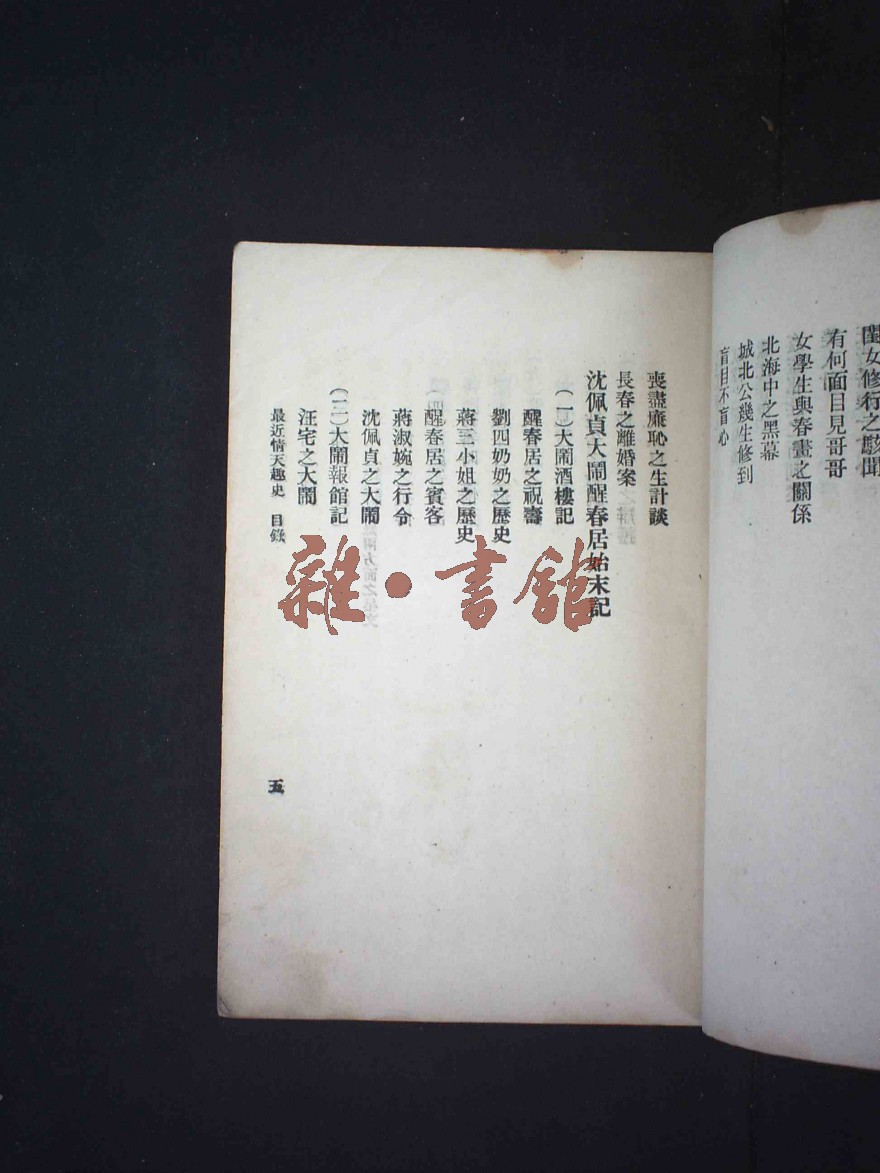 閨女修行之駭聞
有何面目見哥哥
女學生與春畫之關係
北海中之黑幕
城北公幾生修到
盲目不盲心
喪盡廉恥之生計談
長春之離婚案
沈佩貞大鬧醒春居始末記
（一）大鬧酒樓記
醒春居之祝壽
劉四奶奶之歷史
蔣三小姐之歷史
醒春居之賓客
蔣淑婉之行令
沈佩貞之大鬧
（二）大鬧報館記
汪宅之大鬧
最近情天趣史 目錄
五
雜·書館